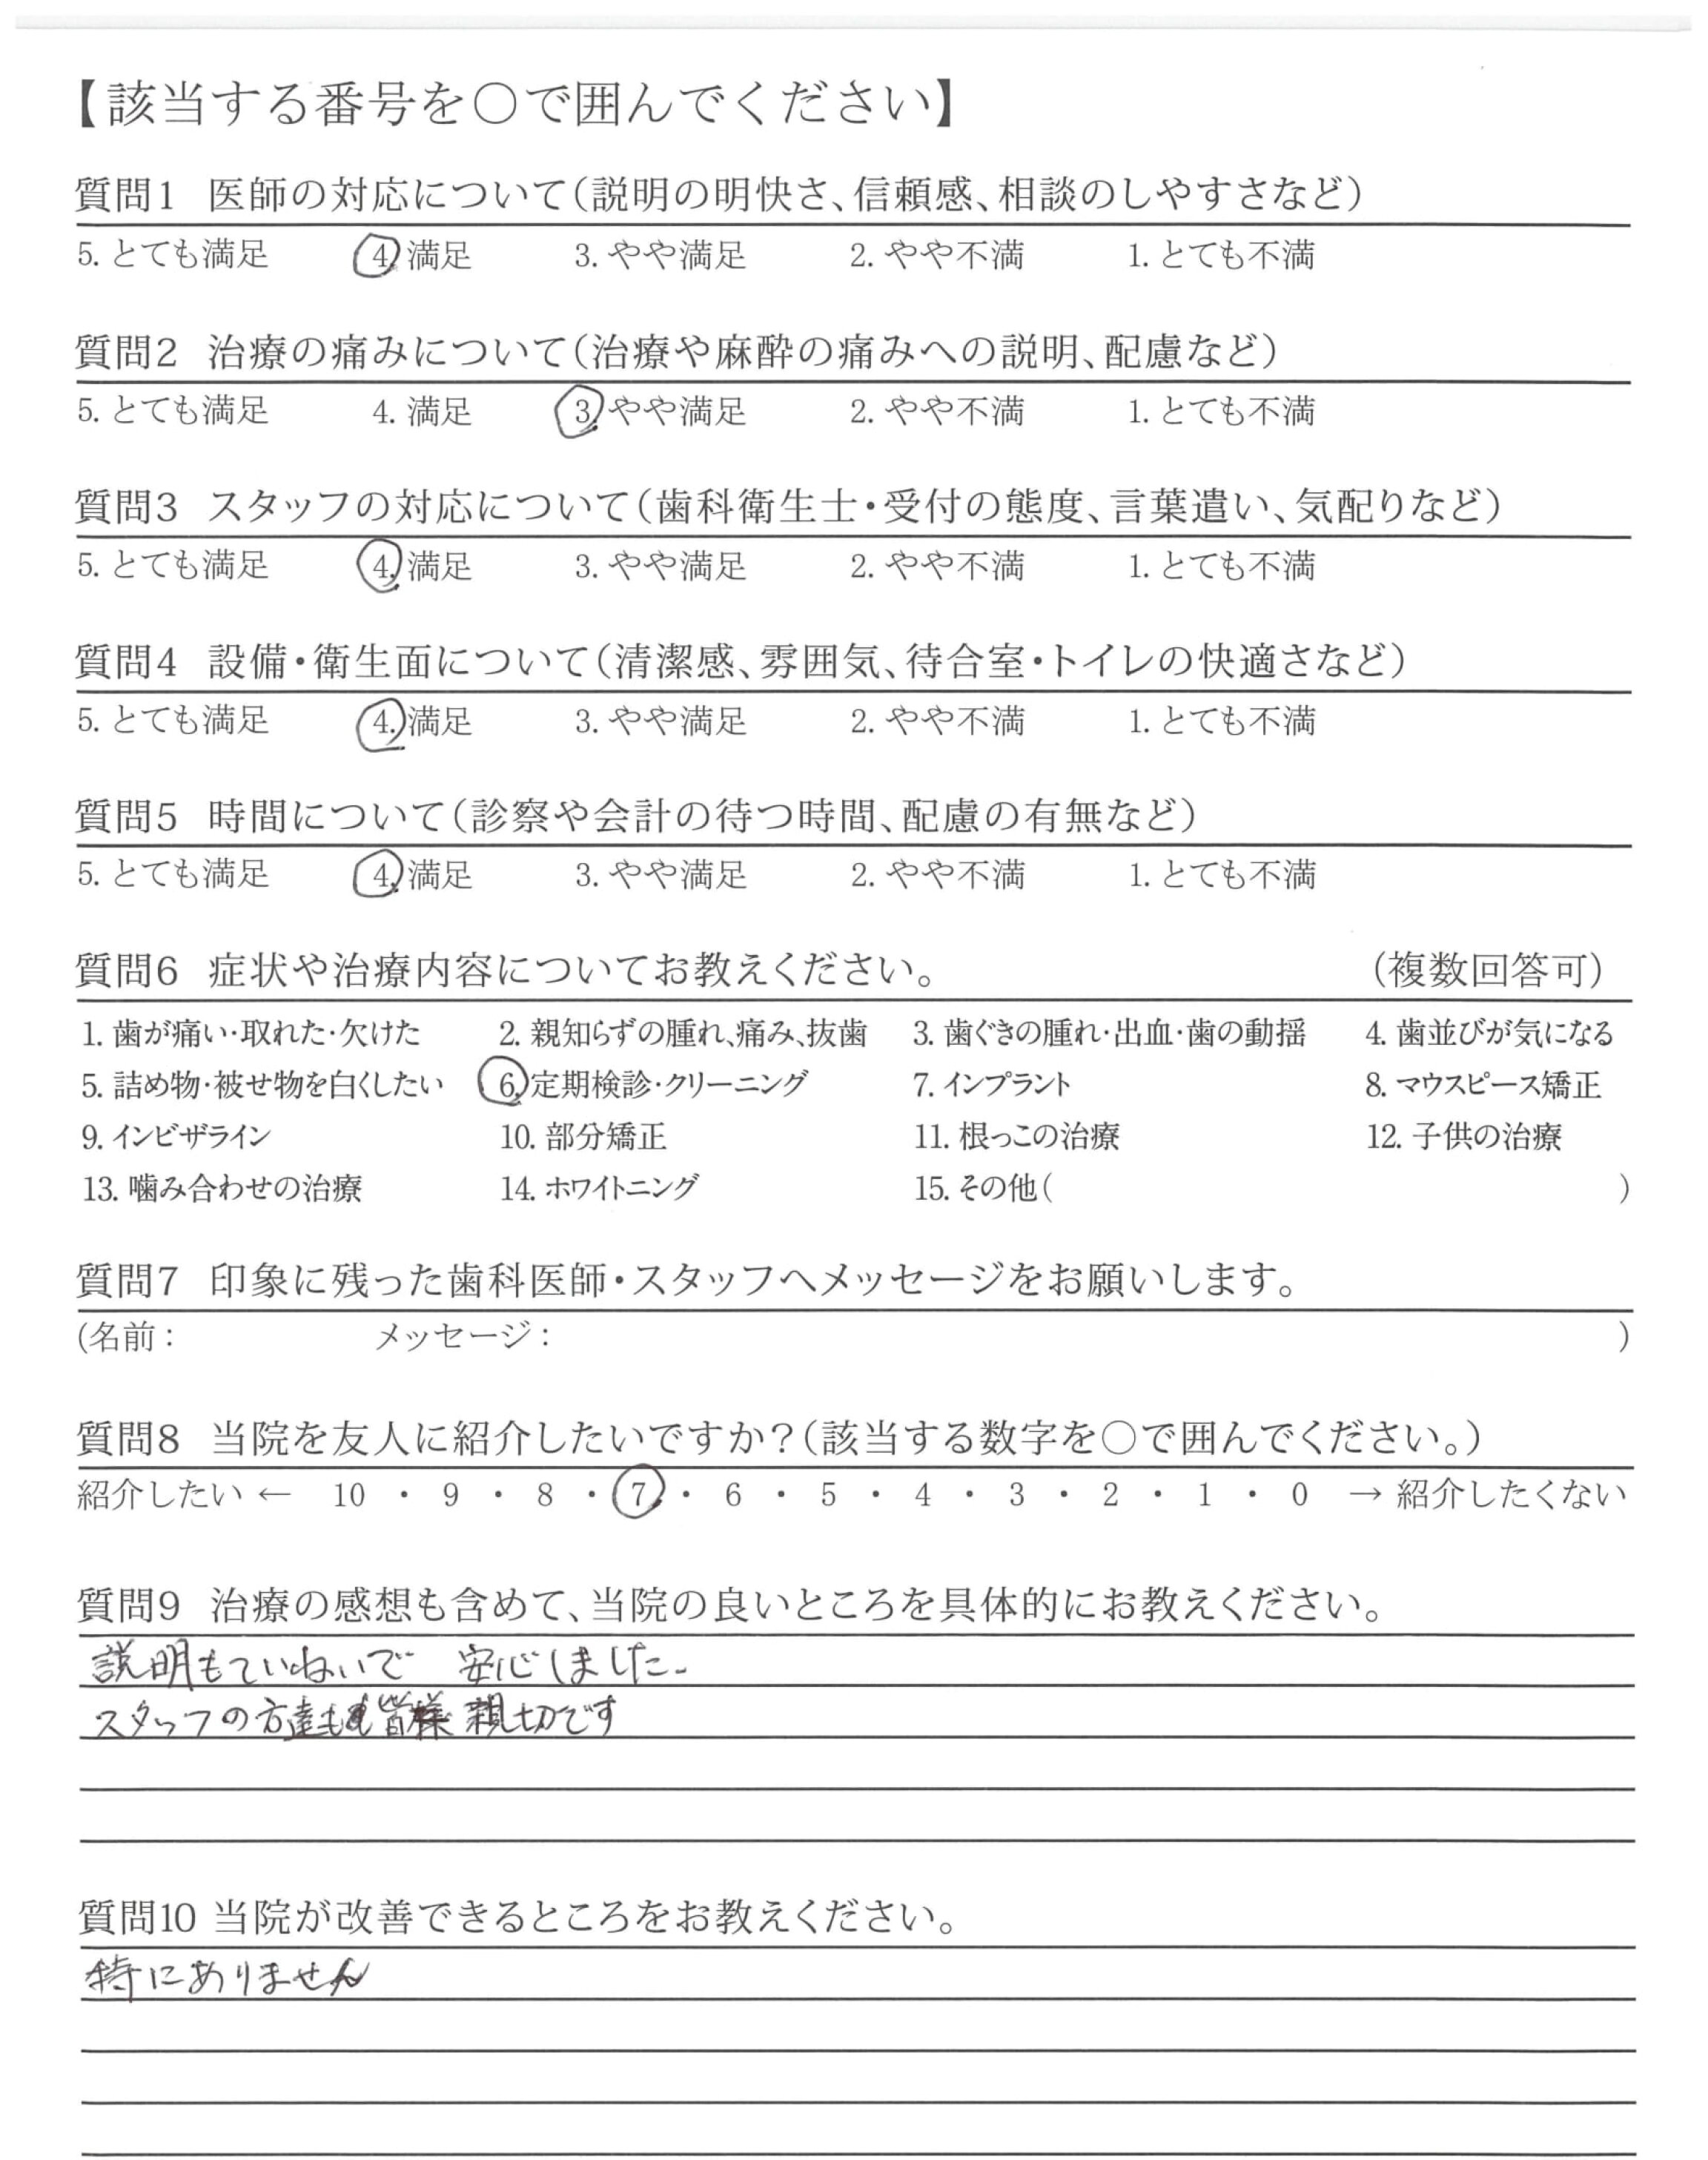 【該当する番号を○で囲んでください】
質問1 医師の対応について(説明の明快さ、信頼感、相談のしやすさなど)
5. とても満足 4. 満足 3. やや満足 2. やや不満 1. とても不満
質問2 治療の痛みについて(治療や麻酔の痛みへの説明、配慮など)
5. とても満足 4. 満足 3. やや満足 2. やや不満 1. とても不満
質問3 スタッフの対応について(歯科衛生士・受付の態度、言葉遣い、気配りなど)
5. とても満足 4. 満足 3. やや満足 2. やや不満 1. とても不満
質問4 設備・衛生面について(清潔感、雰囲気、待合室・トイレの快適さなど)
5. とても満足 4. 満足 3. やや満足 2. やや不満 1. とても不満
質問5 時間について(診察や会計の待つ時間、配慮の有無など)
5. とても満足 4. 満足 3. やや満足 2. やや不満 1. とても不満
質問6 症状や治療内容についてお教えください。 (複数回答可)
1. 歯が痛い・取れた・欠けた 2. 親知らずの腫れ、痛み、抜歯 3. 歯ぐきの腫れ・出血・歯の動揺 4. 歯並びが気になる
5. 詰め物・被せ物を白くしたい 6. 定期検診・クリーニング 7. インプラント 8. マウスピース矯正
9. インビザライン 10. 部分矯正 11. 根っこの治療 12. 子供の治療
13. 噛み合わせの治療 14. ホワイトニング 15. その他( )
質問7 印象に残った歯科医師・スタッフへメッセージをお願いします。
(名前: メッセージ: )
質問8 当院を友人に紹介したいですか?(該当する数字を○で囲んでください。)
紹介したい ← 10 ・ 9 ・ 8 ・ 7 ・ 6 ・ 5 ・ 4 ・ 3 ・ 2 ・ 1 ・ 0 → 紹介したくない
質問9 治療の感想も含めて、当院の良いところを具体的にお教えください。
説明もていねいで 安心しました。
スタッフの方達も皆様 親切です
質問10 当院が改善できるところをお教えください。
特にありません